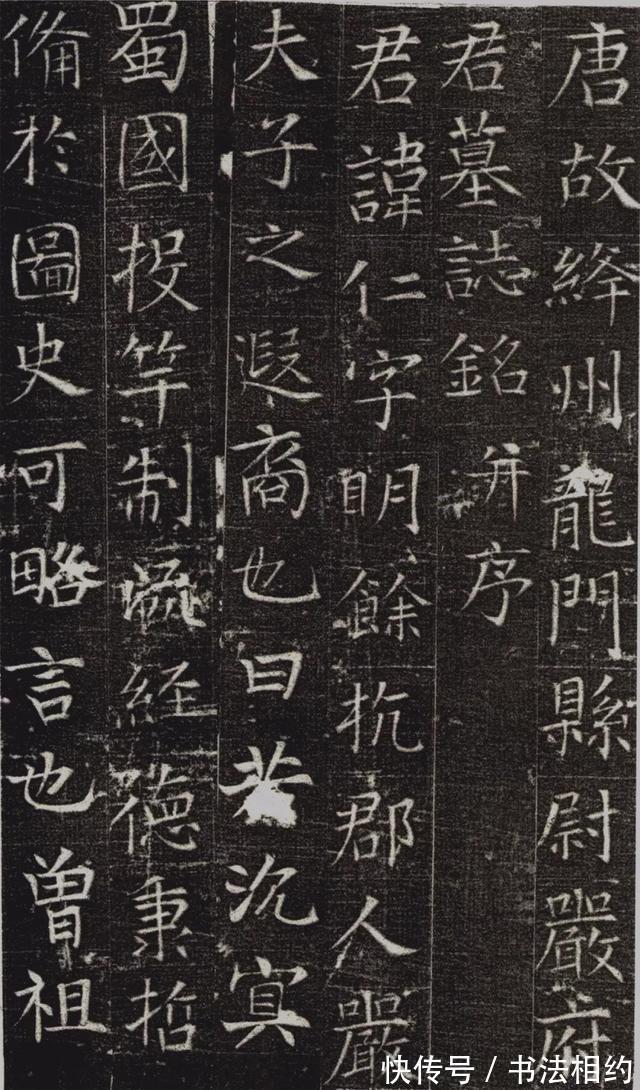 唐故絳州龍門縣尉嚴府
君墓誌銘并序
君諱仁字明餘杭郡人嚴
夫子之遐裔也曰若沉冥
蜀國投竿制 經德秉哲
備於圖史可略言也曾祖
快传号 / 书法相约